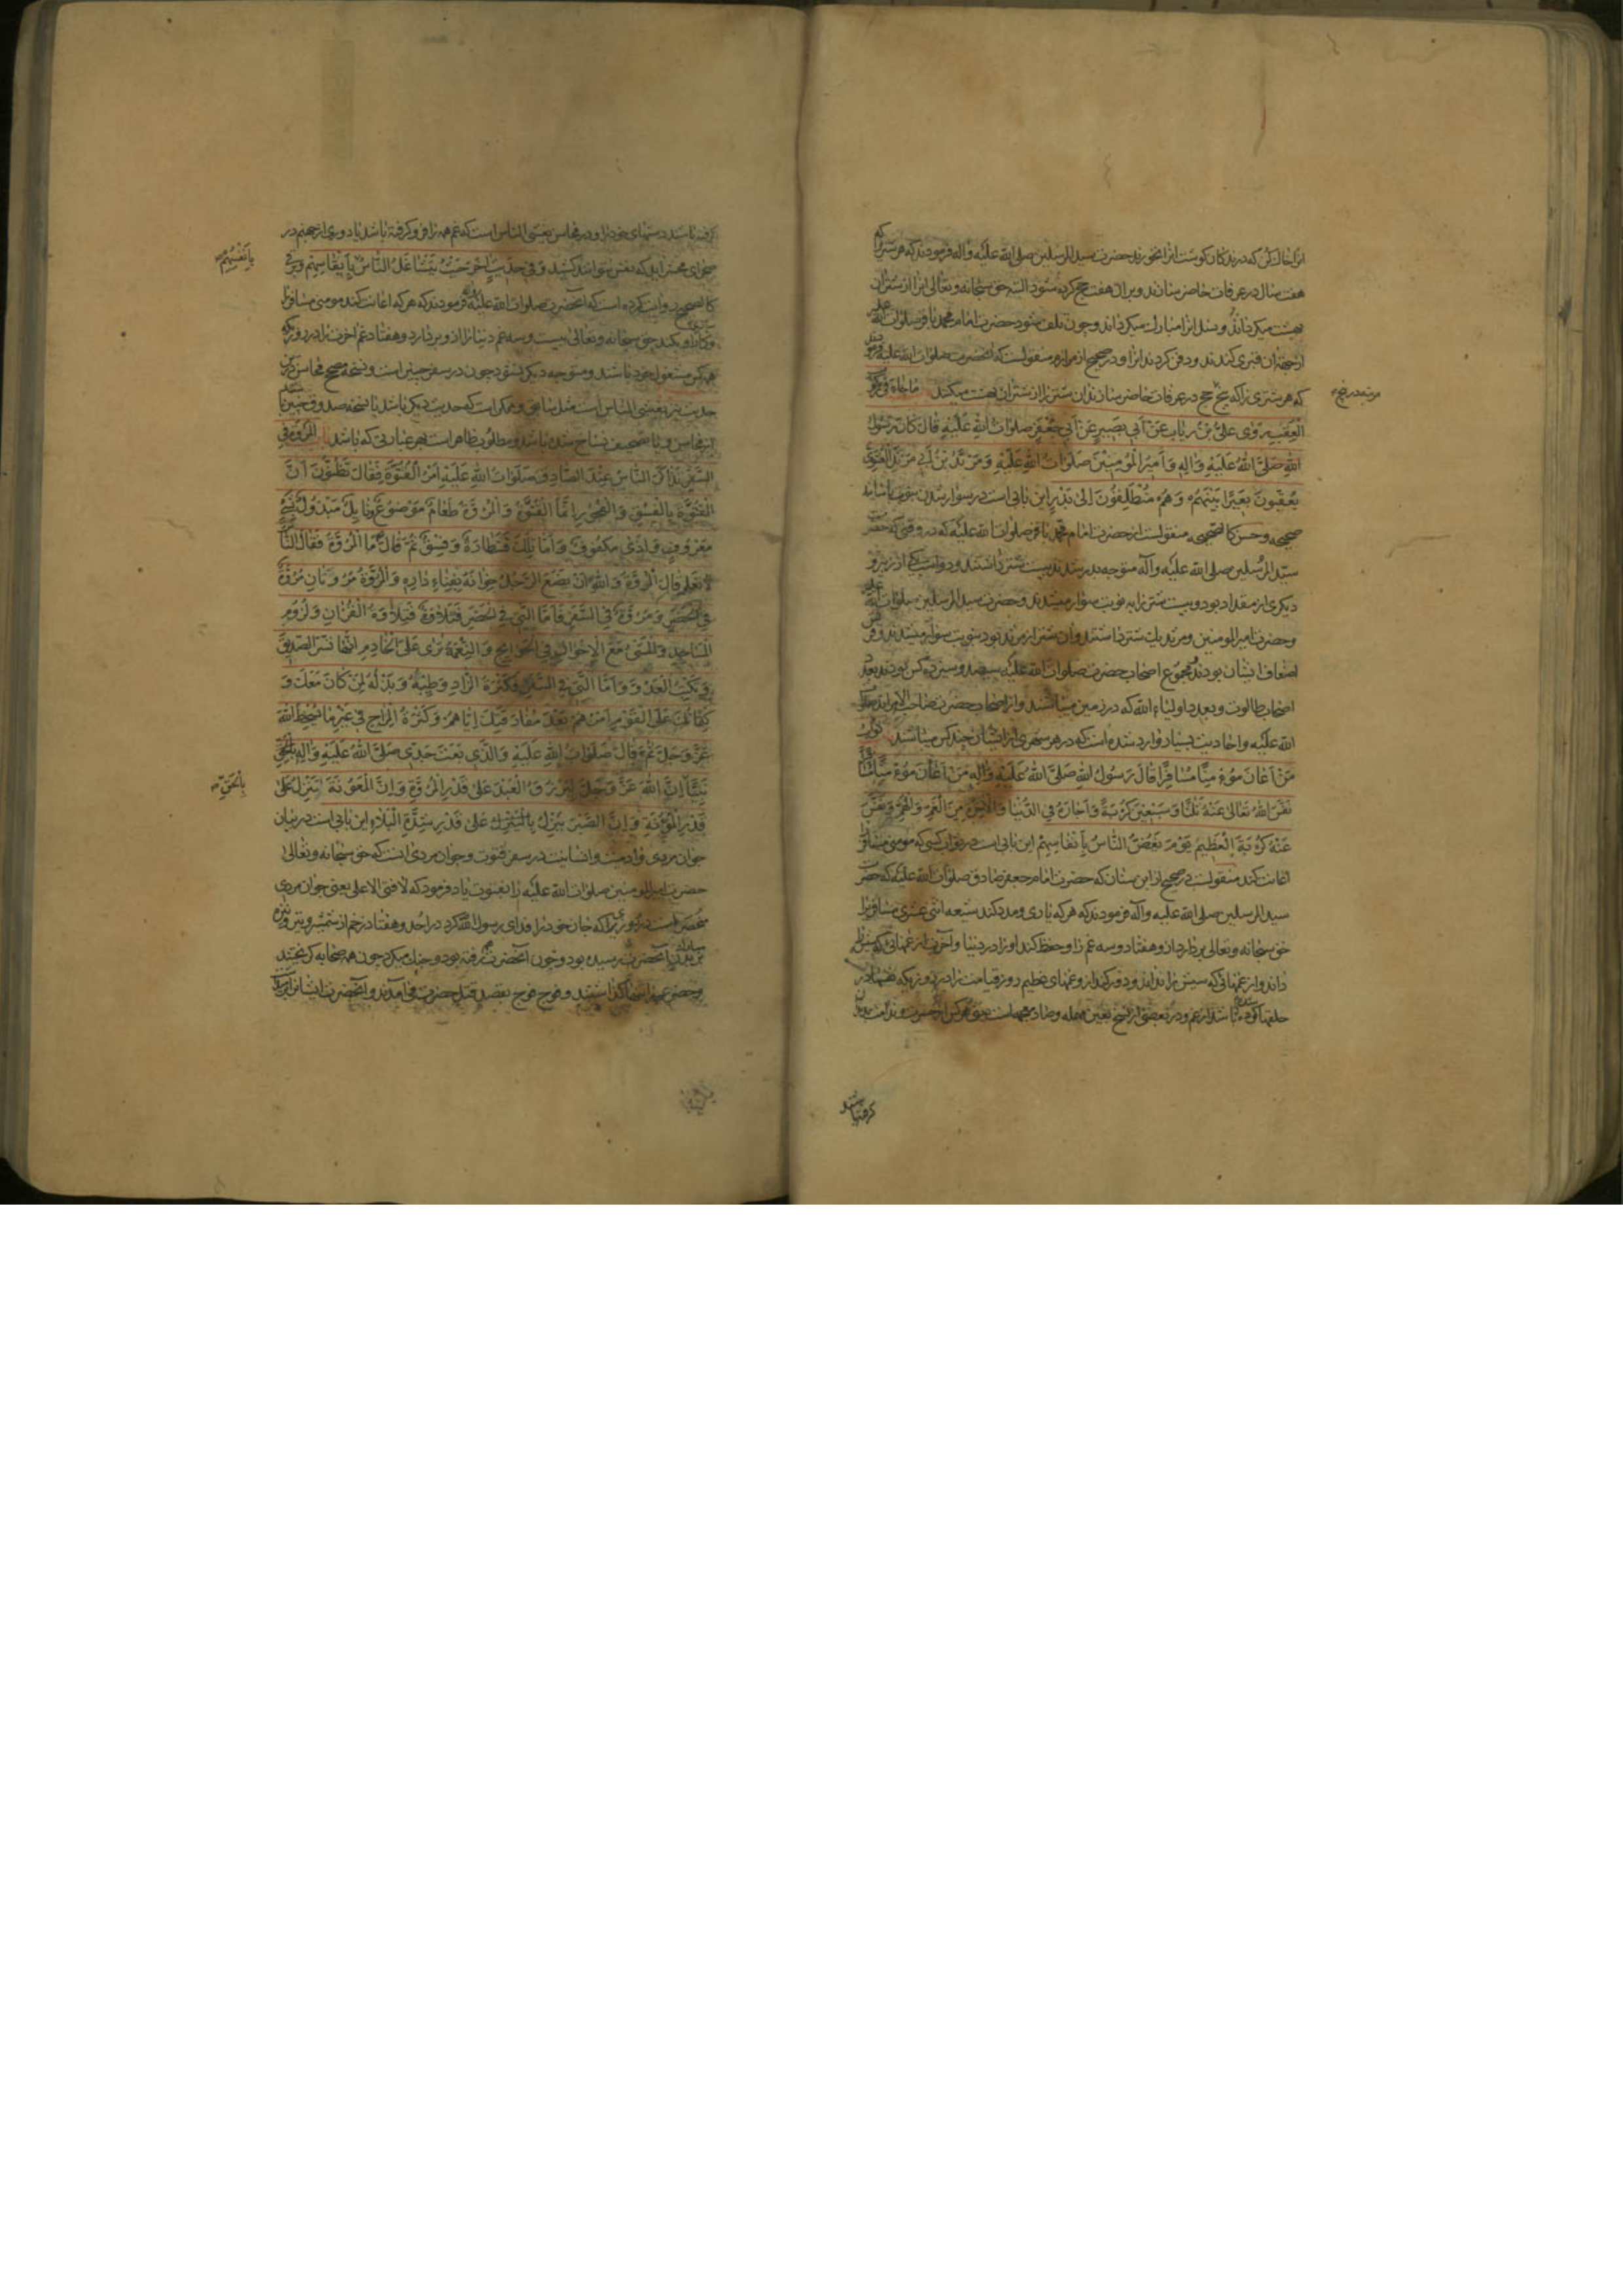 انرا خاك كن كه درندكان كوشت انرا نخورند حضرت سيد المرسلين صلى الله عليه وآله فرمودند كه هر شتريرا كه
هفت سال در عرفات حاضر سازند و بران هفت حج كرده شود البته حق سبحانه وتعالى انرا از شتران
بهشت ميكرداند و نسل انرا مبارك ميكرداند وچون تلف شود حضرت امام محمد باقر صلوات الله عليه
از جهة ان قبرى كندند و دفن كردند انرا و در صحيح از مرازم منقولست كه انحضرت صلوات الله عليه فرمود
كه هر شترى را كه پنج حج در عرفات حاضر سازند ان شتر را از شتران بهشت ميكنند ما جاء فى ركوب
العقب روى على بن رياب عن ابى بصير عن ابى جعفر صلوات الله عليه قال كان رسول
الله صلى الله عليه واله وامير المومنين صلوات الله عليه ومرثد بن ابى مرثد الغنوى
يعقبون بعيرا بينهم وهم منطلقون الى بدر اين بابى است در سوار شدن بنوبت
صحيح و حسن كالصحيح منقولست از حضرت امام محمد باقر صلوات الله عليه كه در وقتى كه حضرت
سيد المرسلين صلى الله عليه وآله متوجه بدر شدند بيست شتر داشتند و دو اسب يكى از زبير و
ديكرى از مقداد بود و بيست شتر را به نوبت سوار ميشدند و حضرت سيد المرسلين صلوات الله عليه
وحضرت امير المومنين ومرثد يك شتر داشتند وان شتر از مرثد بود بنوبت سوار ميشدند و
اضعاف ايشان بودند مجموع اصحاب حضرت صلوات الله عليه سيصد وسيزده كس بودند بعدد
اصحاب طالوت وبعدد اولياء الله كه در زمين ميباشند واز اصحاب حضرت صاحب الامراند صلوات
الله عليه واحاديث بسيار وارد شده است كه در هر شهرى از ايشان چند كس ميباشند ثواب
من اعان مومنا مسافرا قال رسول الله صلى الله عليه واله من اعان مومنا مسافرا
نفس الله تعالى عنه ثلثا وسبعين كربة واجاره فى الدنيا والاخرة من الغم والهم ونفس
عنه كربة العظيم يوم يغص الناس بانفاسهم اين بابى است در ثواب كسى كه مومنى مسافر را
اعانت كند منقولست در صحيح از ابن سنان كه حضرت امام جعفر صادق صلوات الله عليه كه حضرت
سيد المرسلين صلى الله عليه وآله فرمودند كه هر كه يارى ومدد كند شيعه اثنى عشرى مسافر را
حق سبحانه وتعالى بردارد از و هفتاد وسه غم را و حفظ كند او را در دنيا وآخرت از غمهائى كه سببش را
داند و از غمهائى كه سببش را نداند و دور كند از و غمهاى عظيم روز قيامت را در روزيكه نفسها در
حلقها كره شده باشد از غم و در بعضى از نسخ بعين مهمله وضاد معجمه است
مرثد
كرفته باشند
كرفته باشند دستهاى خود را و در محاسن يغشى الناس است كه غم همه را فرو كرفته باشد
صحراى محشر آيد كه نفس نتوانند كشيد وفى حديث اخر حيث يتشاغل الناس بانفاسهم
كالصحيح روايت كرده است كه آنحضرت صلوات الله عليه فرمودند كه هر كه اعانت كند مومنى مسافر را
حق سبحانه وتعالى بيست وسه غم دنيا را از و بردارد وهفتاد غم اخرت را در روزيكه
هر كس مشغول خود باشند و متوجه ديكرى نشود چون در سفر چنين است ونسخه صحيح محاسن
حديث نيز يغشى الناس است مثل سابق وممكن است كه حديث ديكر باشد يا نسخه صدوق چنين باشد
از محاسن و يا تصحيف نساخ شده باشد و مطلوب ظاهر است بهر عبارتى كه باشد باب المروة فى
السفر تذاكر الناس عند الصادق صلوات الله عليه امر الفتوة فقال تظنون ان
الفتوة بالفسق والفجور انما الفتوة والمروة طعام موضوع ونايل مبذول
معروف واذى مكفوف واما تلك فشطارة وفسق ثم قال ما المروة فقال الناس
لا نعلم قال المروة والله ان يضع الرجل خوانه بفناء داره والمروة مروتان مروة
فى الحضر ومروة فى السفر فاما التى فى الحضر فتلاوة القران ولزوم
المساجد والمشى مع الاخوان فى الحوايج والنعمة ترى على الخادم انها تسر الصديق
وتكبت العدو واما التى فى السفر فكثرة الزاد وطيبه وبذله لمن كان معك و
كتمانك على القوم امرهم بعد مفارقتك اياهم وكثرة المزاح فى غير ما يسخط الله
عز وجل ثم قال صلوات الله عليه والذى بعث جدى صلى الله عليه واله بالحق
نبيا ان الله عز وجل ليرزق العبد على قدر المروة وان المعونة تنزل على
قدر المؤنة وان الصبر ينزل على قدر شدة البلاء اين بابى است در بيان
جوان مردى وادميت وانسانيت در سفر فتوت وجوان مردى انست كه حق سبحانه وتعالى
حضرت امير المومنين صلوات الله عليه را بفتوت ياد فرمود كه لا فتى الا على يعنى جوان مردى
منحصر است در او زيرا كه جان خود را فداى رسول الله كرد در احد وهفتاد زخم از شمشير وتير ونيزه
بر بدن آنحضرت رسيده بود وچون آنحضرت رفته بود وجنك ميكرد چون همه صحابه كريختند
وحضرت را تنها كذاشتند و فوج فوج بقصد قتل حضرت مى آمدند وآنحضرت ايشانرا
بانفسهم
بالحق